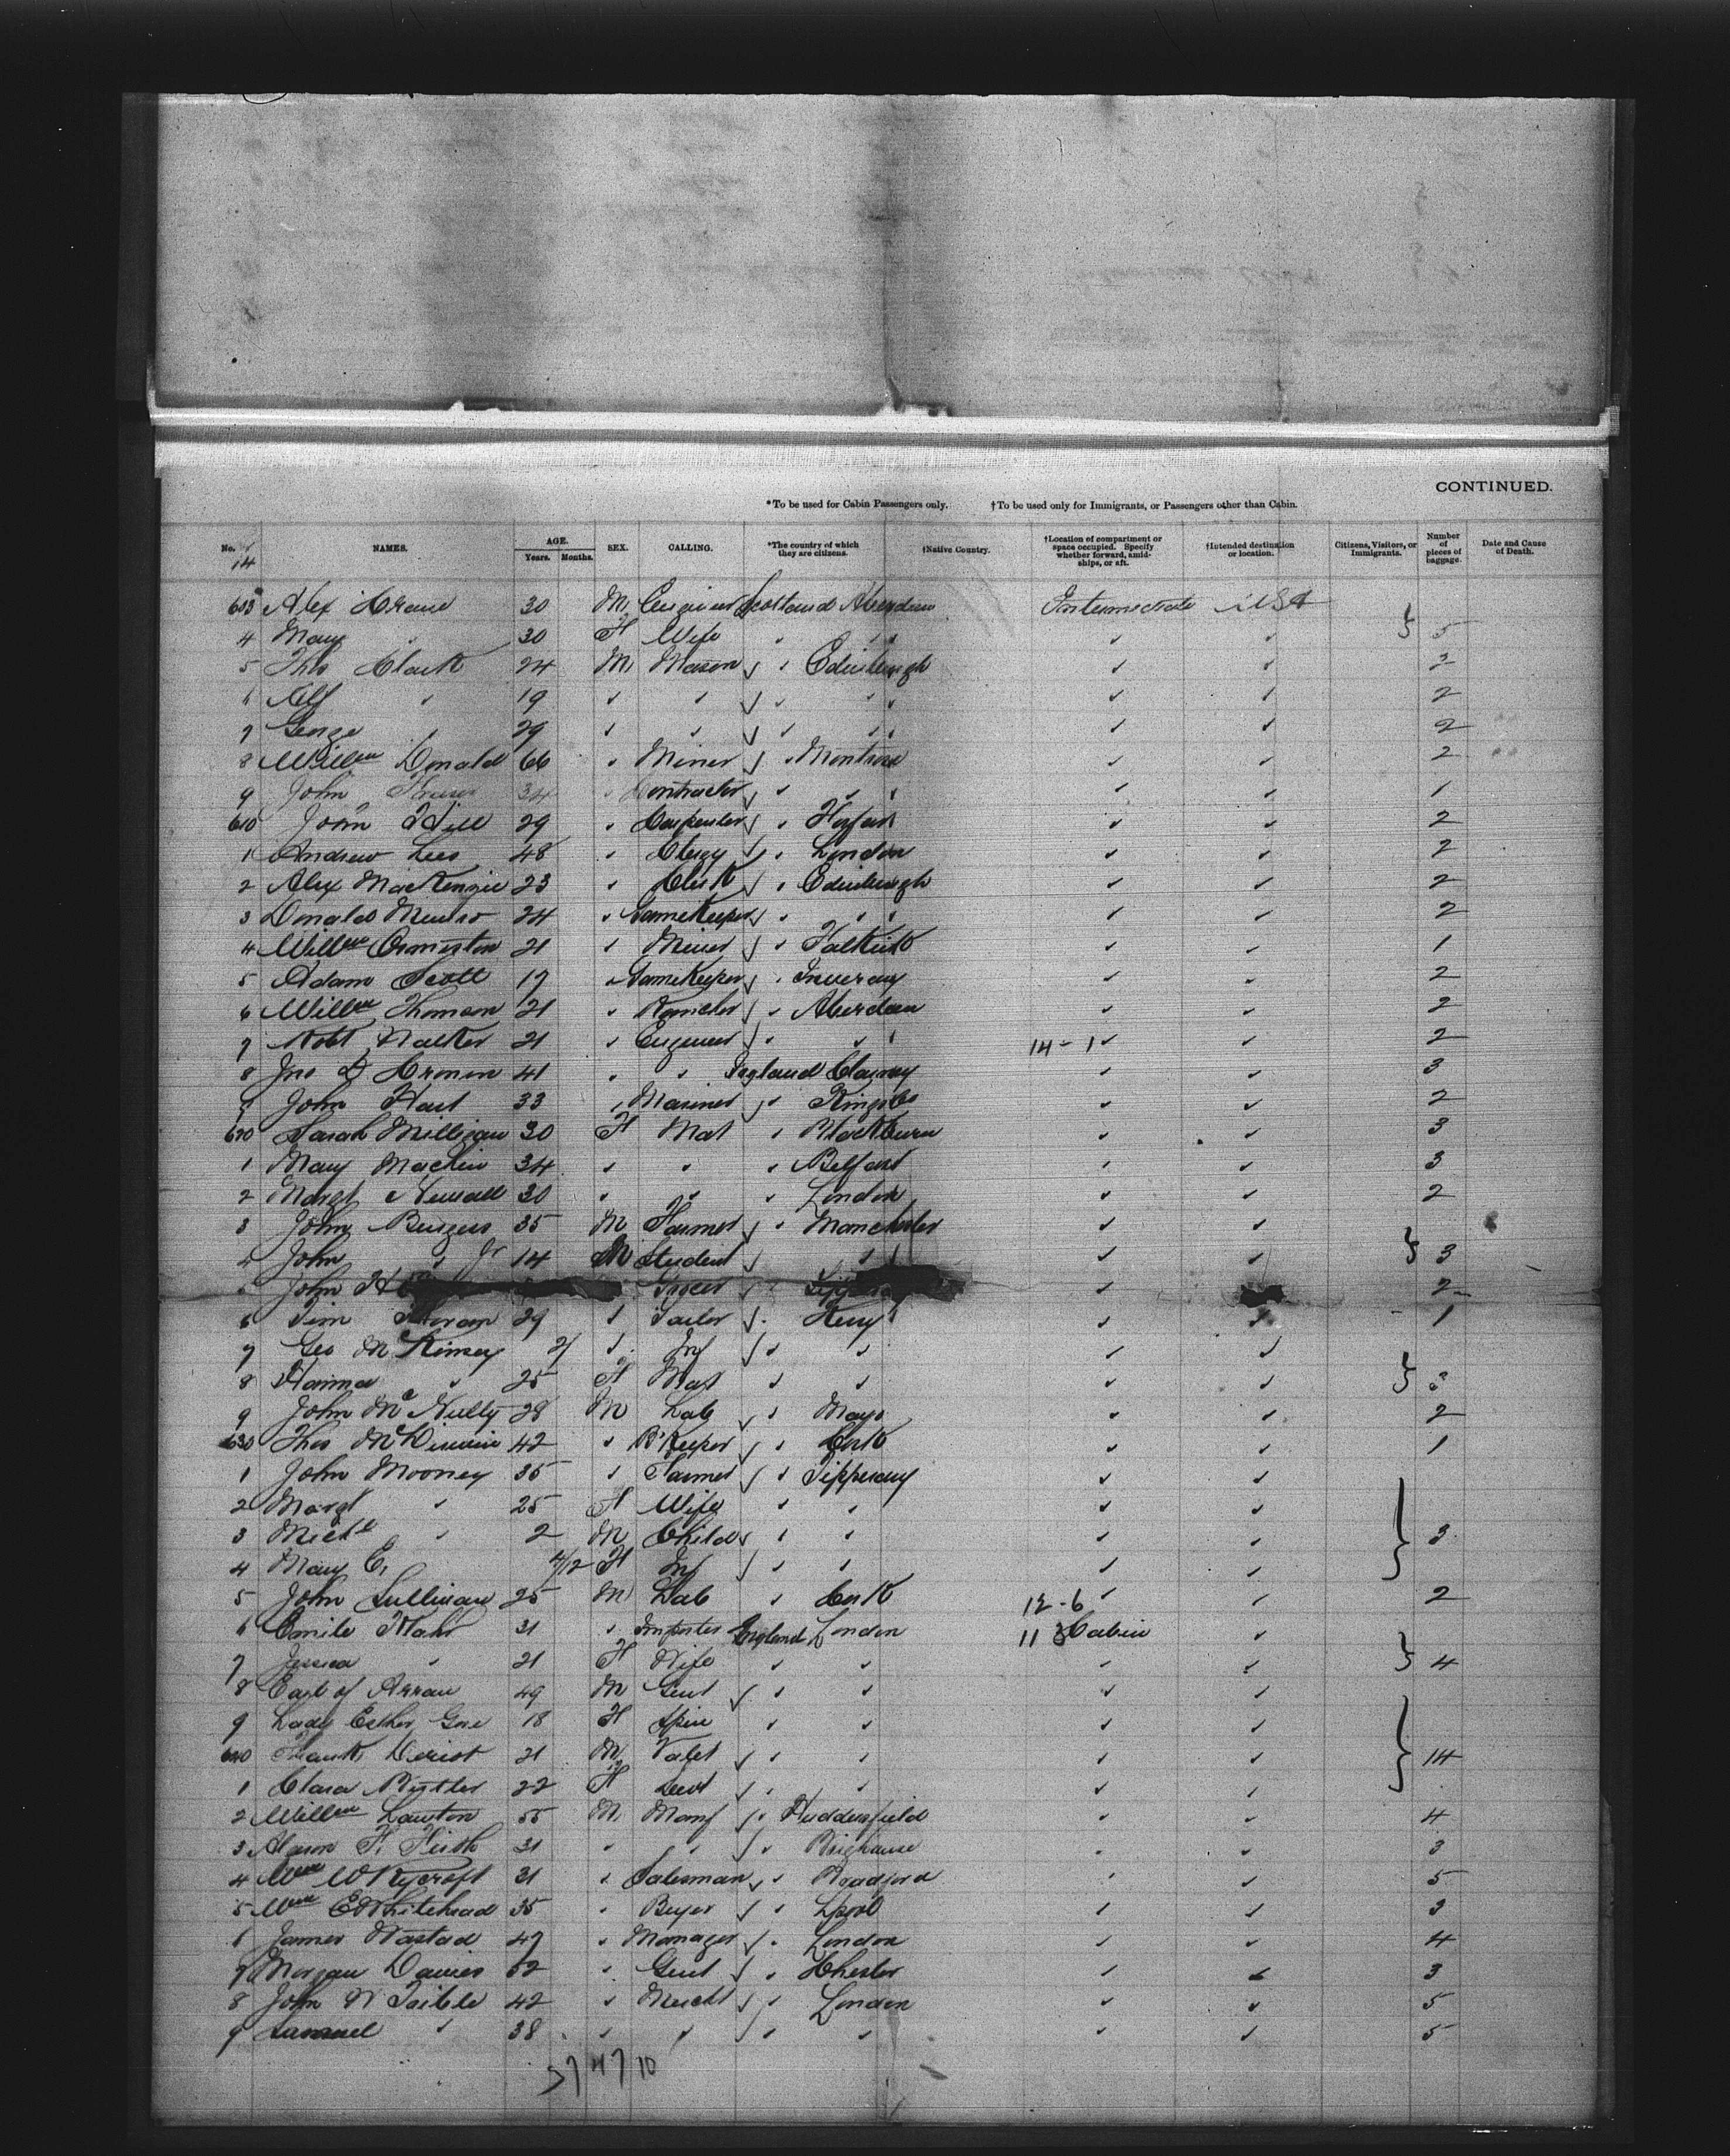 CONTINUED.
*To be used for Cabin Passengers only. †To be used only for Immigrants, or Passengers other than Cabin.
No. NAMES. AGE. Years. Months. SEX. CALLING. *The country of which they are citizens. †Native Country. †Location of compartment or space occupied. Specify whether forward, amidships, or aft. †Intended destination or location. Citizens, Visitors, or Immigrants. Number of pieces of baggage. Date and Cause of Death.
14
603 Alex 30 M Engineer Scotland Aberdeen Intermediate USA
4 Mary " 30 F Wife 5
5 Thos Clark 24 M Mason Edinburgh 2
6 Alf " 19 2
7 George 29 2
8 Willm Donald 66 Miner Montrose 2
9 John 34 Contractor 1
610 John Hill 29 Carpenter 2
1 Andrew Lees 48 Clergy London 2
2 Alex MacKenzie 23 Clerk Edinburgh 2
3 Donald Munro 24 GameKeeper 2
4 Willm Ormiston 21 Miner Falkirk 1
5 Adam Scott 17 GameKeeper Inveray 2
6 Willm Thomson 21 Rancher Aberdeen 2
7 Robt Walker 21 Engineer 14-1 2
8 Jno D Cronin 41 3
9 John Hart 33 Mariner Kings Co 2
620 Sarah Milligan 30 F Mat Blackburn 3
1 Mary Machin 34 Belfast 3
2 Margt Newall 30 London 2
3 John Burgess 35 M Farmer Manchester
4 John " Jr 14 M Student 3
5 John H Grocer 2
6 Tim Horan 29 Tailor Kerry 1
7 Geo McKimsey Inf
8 Hanna " 25 F Mat
9 John McNulty 28 M Lab Mayo 2
630 Thos 42 B'Keeper Cork 1
1 John Mooney 35 Farmer Tipperary
2 Margt " 25 F Wife
3 Michl " 2 M Child 3
4 Mary E. 4/12 F Inf
5 John Sullivan 25 M Lab Cork 12-6 2
6 Emile Mahr 31 Importer England London 11 3 Cabin
7 Jessica " 21 F Wife 4
8 Earl of Arran 49 M Gent
9 Lady Esther Gore 18 F Spin
640 Frank 21 M Valet 14
1 Clara Butler 22 F Servt
2 Willm Lawton 55 M Manf Huddersfield 4
3 F. Firth 31 Brighouse 3
4 Wm W Rycroft 31 Salesman Bradford 5
5 Wm E Whitehead 35 Buyer Lpool 3
6 James Wastad 47 Manager London 4
7 Morgan Davies 52 Gent Chester 3
8 John W 42 Mercht London 5
9 Samuel " 38 5
37 47 10